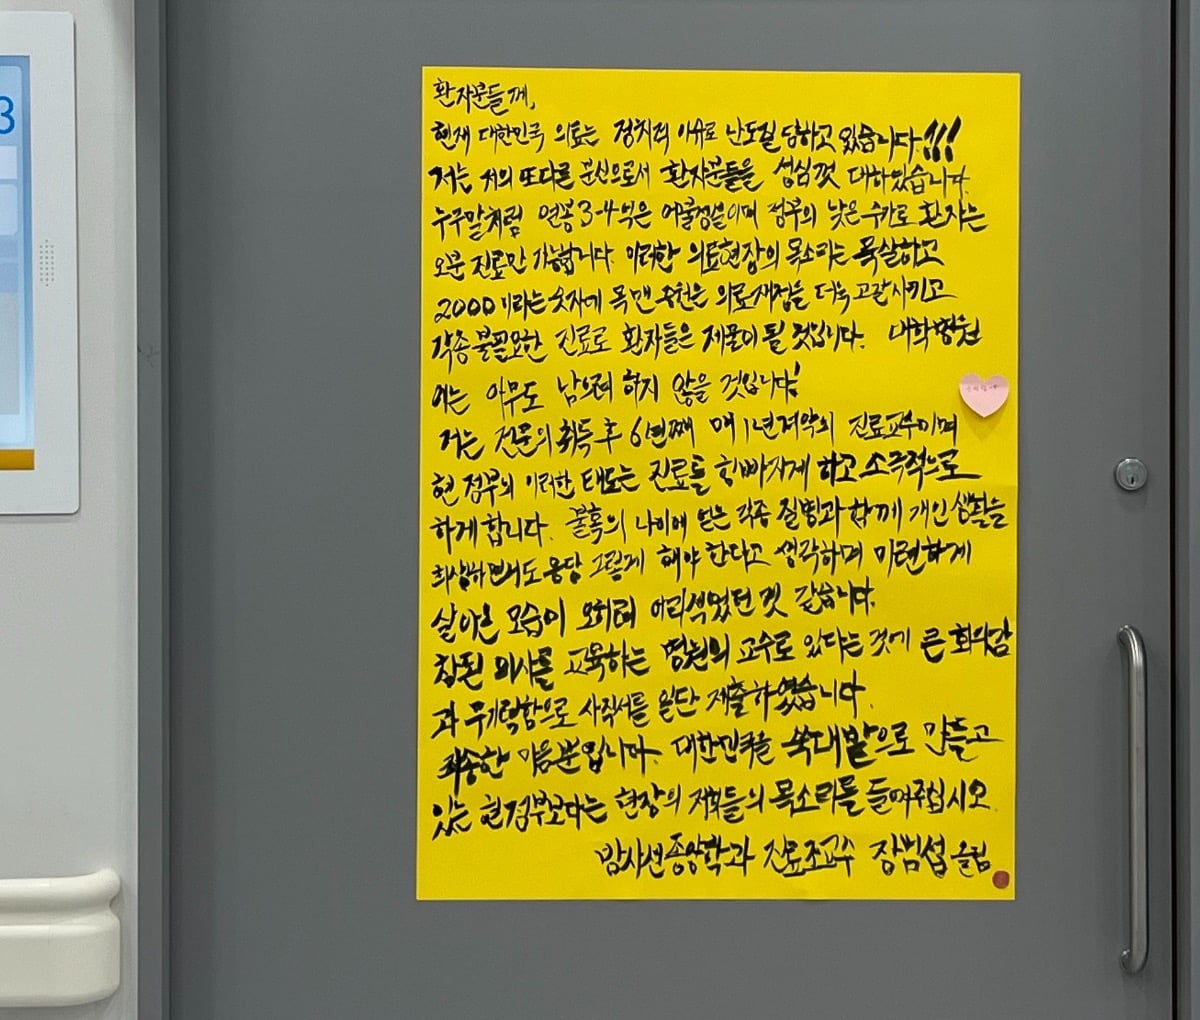 3
환자분들께,
현재 대한민국 의료는 정치적 이유로 난도질 당하고 있습니다.!!!
저는 저의 또다른 분신으로서 환자분들을 성심껏 대하였습니다.
누구말처럼 연봉 3-4억은 어불성설이며 정부의 낮은 수가로 환자는
오분 진료만 가능합니다. 이러한 의료현장의 목소리는 묵살하고
2000이라는 숫자에 목맨 은 의료재정을 더욱 고갈시키고
각종 불필요한 진료로 환자들은 제물이 될 것입니다. 대학병원
에는 아무도 남으려 하지 않을 것입니다!
저는 전문의 취득 후 6년째 매 1년 계약의 진료교수이며
현 정부의 이러한 태도는 진료를 힘빠지게 하고 소극적으로
하게 합니다. 불혹의 나이에 얻은 각종 질병과 함께 개인 생활을
희생하면서도 응당 그렇게 해야 한다고 생각하며 미련하게
살아온 모습이 오히려 어리석었던 것 같습니다.
참된 의사를 교육하는 병원의 교수로 있다는 것에 큰 회의감
과 무기력함으로 사직서를 일단 제출하였습니다.
죄송한 마음뿐입니다. 대한민국을 쑥대밭으로 만들고
있는 현 정부보다는 현장의 저희들의 목소리를 들어주십시오.
방사선종양학과 진료조교수 장범섭 올림